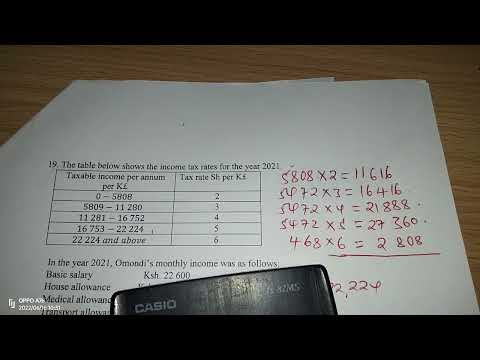 19. The table below shows the income tax rates for the year 2021.
Taxable income per annum per K£ Tax rate Sh per K£
0 – 5808 2
5809 – 11 280 3
11 281 – 16 752 4
16 753 – 22 224 5
22 224 and above 6
In the year 2021, Omondi's monthly income was as follows:
Basic salary Ksh. 22 600
House allowance
Medical allowance
Transport allowan
5808 × 2 = 11616
5472 × 3 = 16416.
5472 × 4 = 21888.
5472 × 5 = 27360.
468 × 6 = 2808
22,224
CASIO
OPPO A